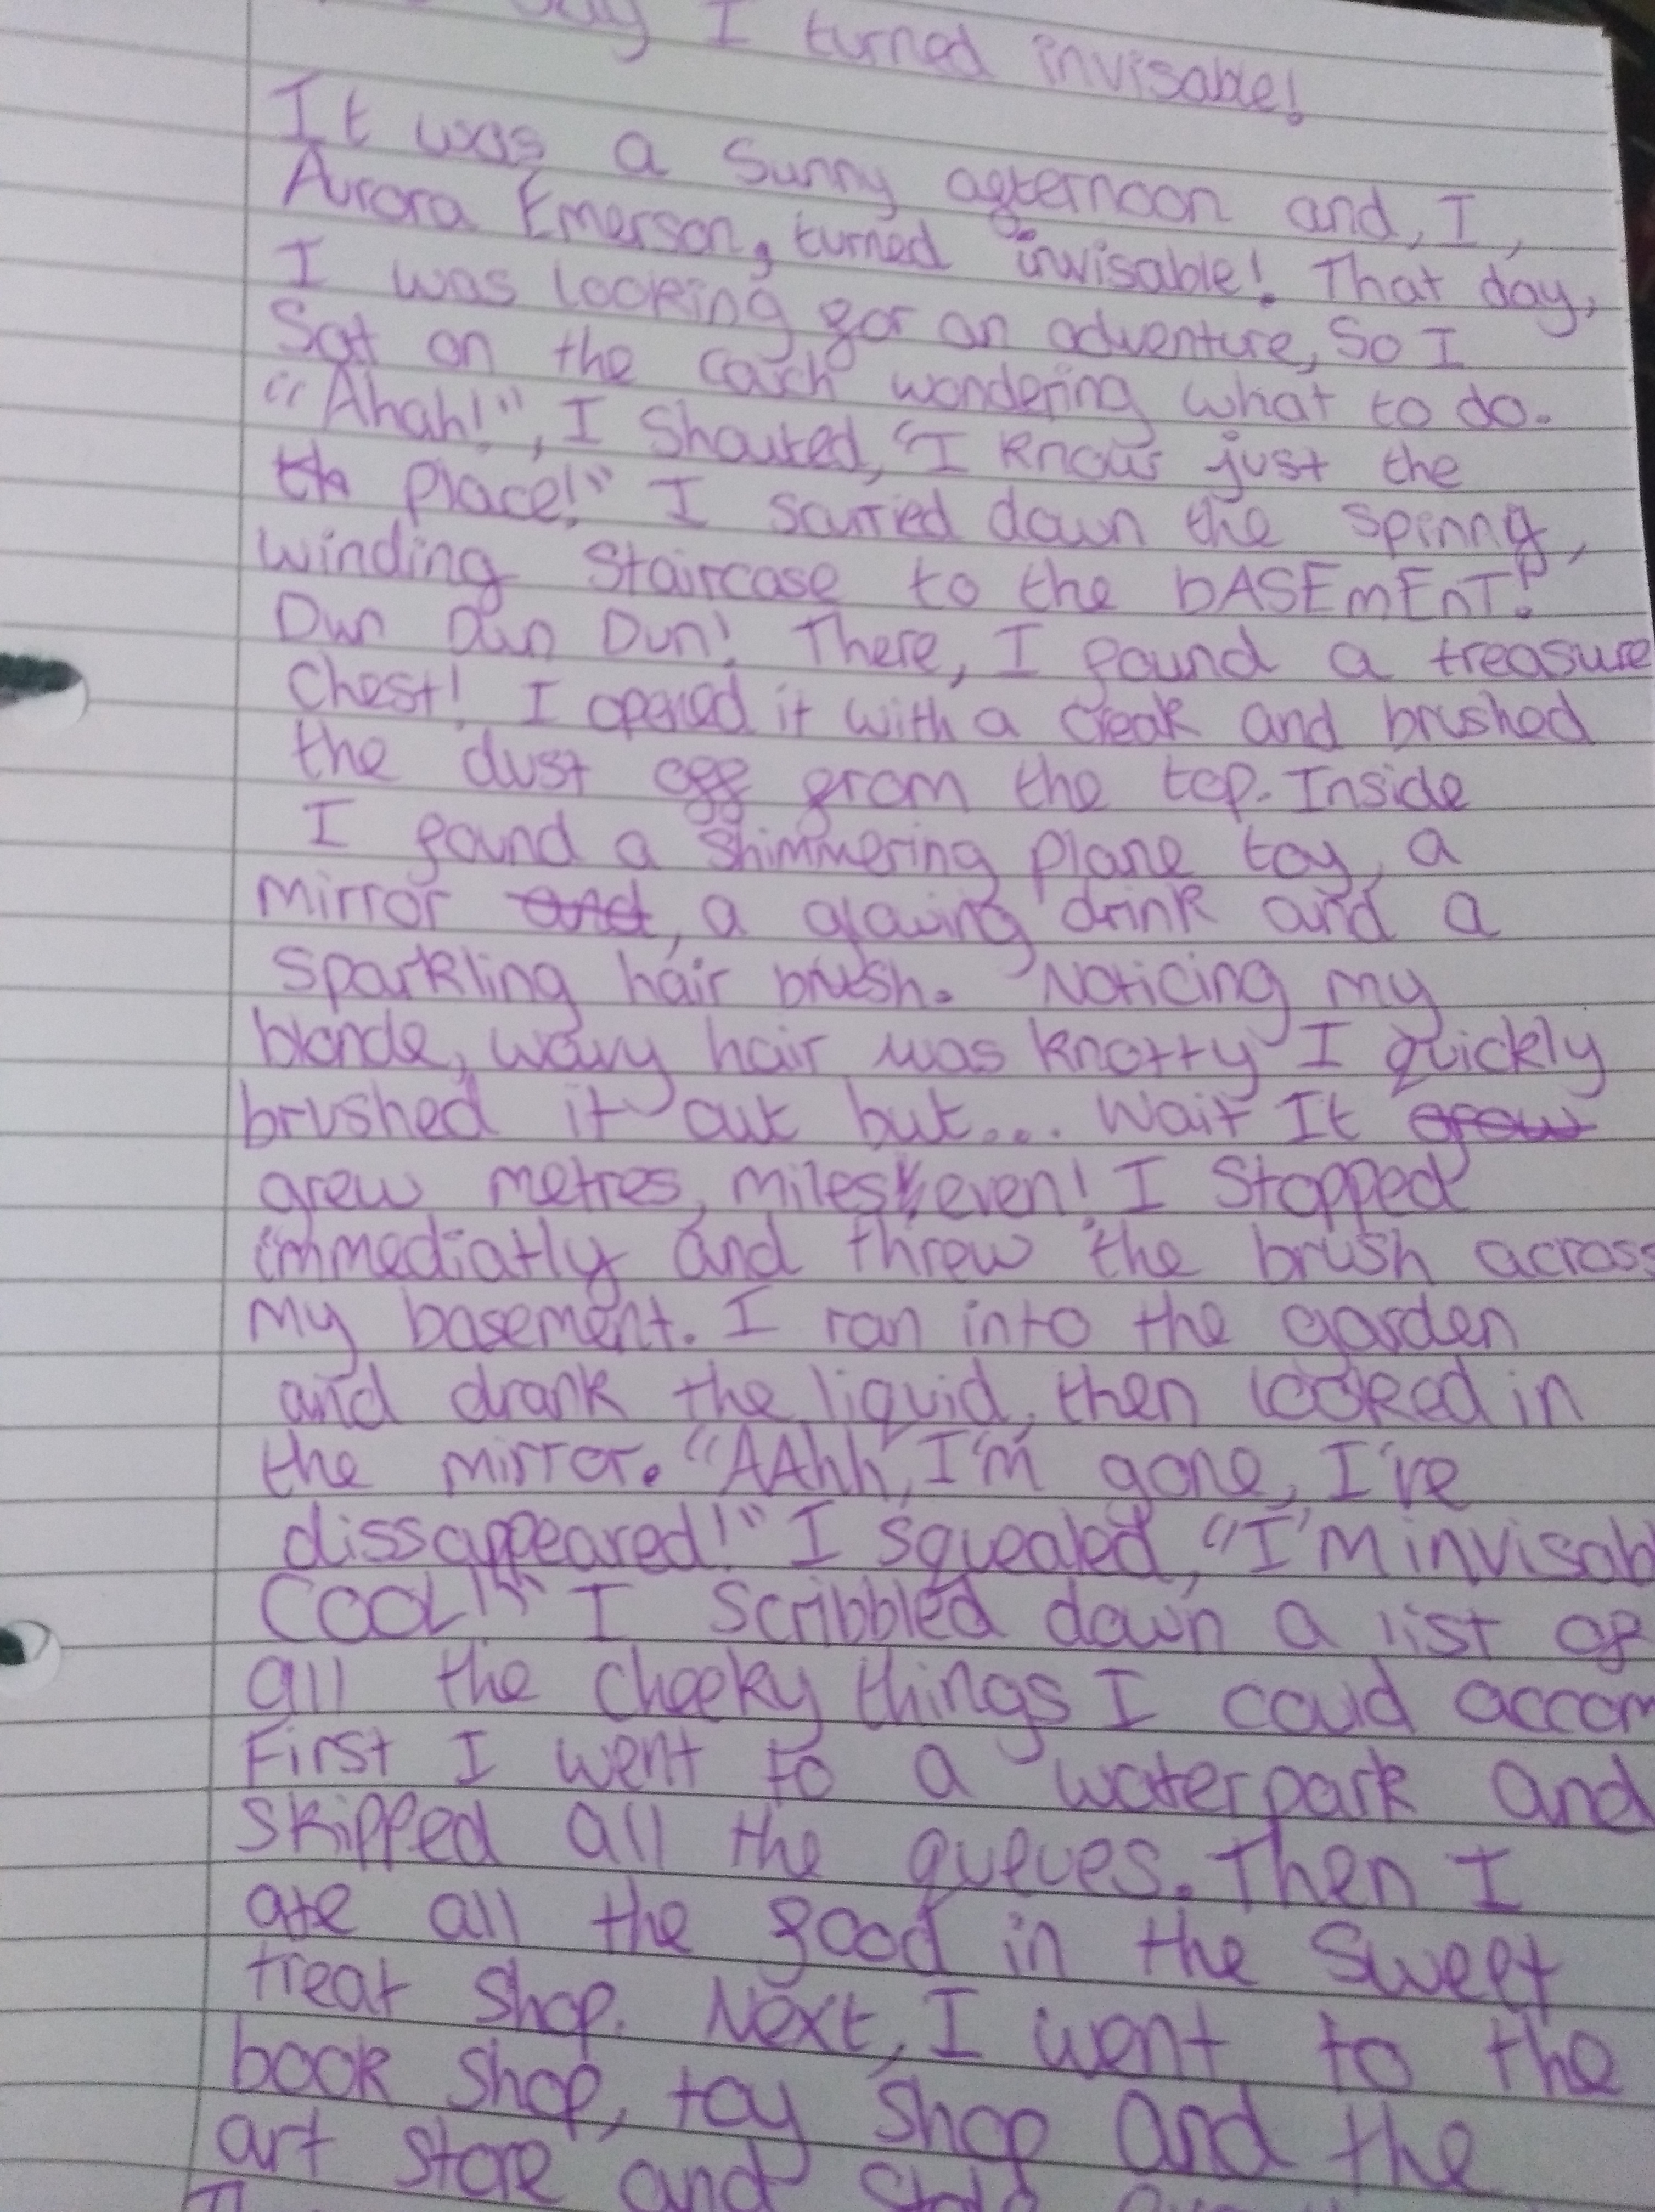 I turned invisable!
It was a sunny afternoon and, I,
Aurora Emerson, turned invisable! That day,
I was looking for an adventure, so I
Sat on the couch wondering what to do.
"Ahah!", I shouted, "I know just the
place!" I scurried down the spinny,
winding staircase to the bASEmEnT!
Dun Dun Dun! There, I found a treasure
chest! I opened it with a creak and brushed
the dust off from the top. Inside
I found a shimmering plane toy, a
mirror and, a glowing drink and a
sparkling hair brush. Noticing my
blonde, wavy hair was knotty I quickly
brushed it out but... Wait It grow
grew metres, miles even! I stopped
immediatly and threw the brush across
my basement. I ran into the garden
and drank the liquid, then looked in
the mirror. "AAhh, I'm gone, I've
dissappeared!" I squealed, "I'm invisab
COOL!" I scribbled down a list of
all the cheeky things I could accom
First I went to a waterpark and
skipped all the queues. Then I
ate all the food in the sweet
treat shop. Next, I went to the
book shop, toy shop and the
art store and